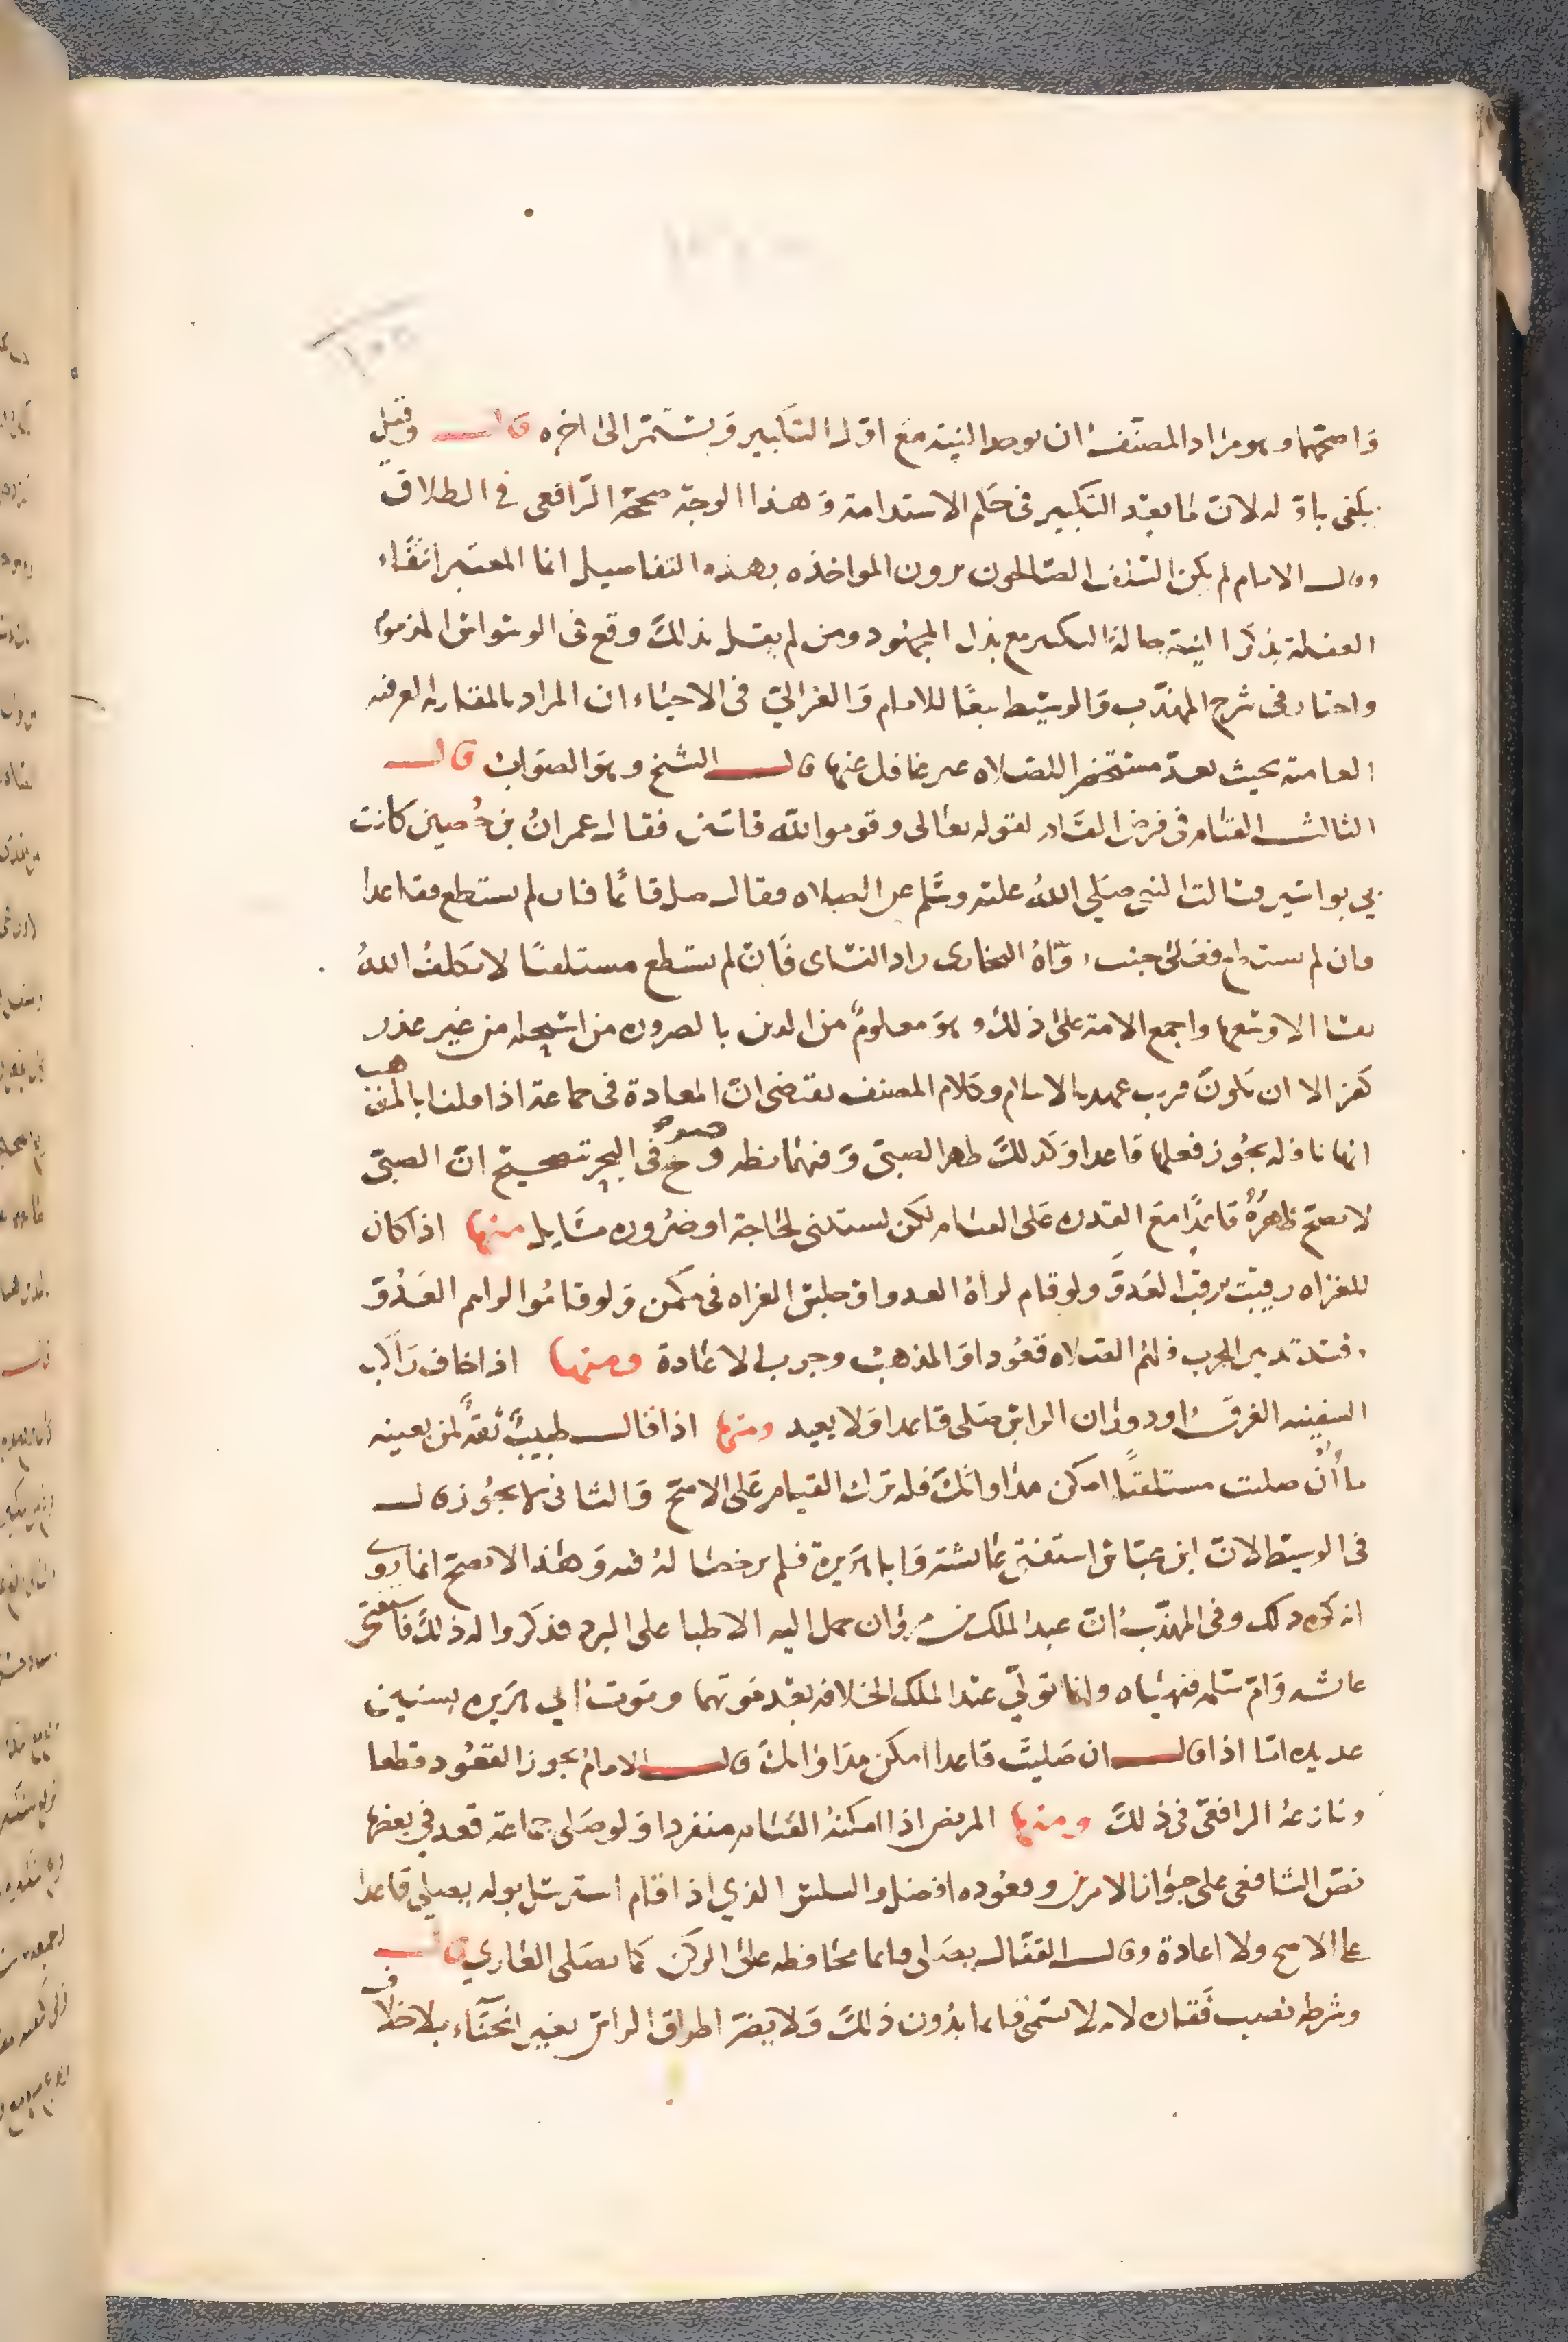 واصحهما وهو مراد المصنف ان توجد النية مع اول التكبير وتستمر الى اخره قال وقيل
يكفى باوله لان ما بعد التكبير فى حكم الاستدامة وهذا الوجه صححه الرافعى فى الطلاق
وقال الامام لم يكن السلف الصالحون يرون المواخذه بهذه التفاصيل انما المعتبر انتفاء
الغفلة بذكر النية حالة التكبير مع بذل المجهود ومن لم يقل بذلك وقع فى الوسواس المذموم
واختار فى شرح المهذب والوسيط تبعًا للامام والغزالي فى الاحياء ان المراد بالمقارنه العرفيه
العامية بحيث يعد مستحضرا للصلاه غير غافل عنها قال الشيخ وهو الصواب قال
الثالث القيام فى فرض القادر لقوله تعالى وقوموا لله قانتين فقال عمران بن حُصين كانت
بي بواسير فسالت النبي صلى الله عليه وسلم عن الصلاه فقال صل قائمًا فان لم يستطع فقاعدا
فان لم يستطع فعلى جنب رواه البخارى زاد النساى فان لم يستطع مستلقيًا لا يكلف الله
نفسا الا وسعها واجمع الامة على ذلك وهو معلوم من الدين بالضروره من استحله من غير عذر
كفر الا ان يكون قريب عهد بالاسلام وكلام المصنف يقتضى ان المعادة فى جماعة اذا قلنا بالمذهب
انها نافله يجوز فعلها قاعدا وكذلك ظهر الصبى وفيهما نظر وصحح فى البحر تصحيح ان الصبى
لا يصح ظهره قاعدًا مع القدره على القيام لكن يستثنى لحاجة او ضروره مسايل منها اذا كان
للغزاه رقيب يرقب العدو ولو قام لراه العدو او جلس الغزاه فى مكمن ولو قاموا لراهم العدو
وفسد تدبير الحرب فلهم الصلاه قعودا والمذهب وجوب الاعادة ومنها اذا خاف راكب
السفينه الغرق او دوران الراس صلى قاعدا ولا يعيد ومنها اذا قال طبيبٌ ثقةٌ لمن بعينه
ما ان صليت مستلقيًا امكن مداواتك فله ترك القيام على الاصح والثانى لا يجوز قال
فى الوسيط لان ابن عباس استفتى عائشة وابا هريرة فلم يرخصا له فيه وهذا لا يصح انما روى
انه كره ذلك وفى المهذب ان عبد الملك بن مروان حمل اليه الاطبا على البرد فذكروا له ذلك فاستفتى
عائشه وام سلمه فنهياه وانما تولى عبد الملك الخلافه بعد موتهما وموت ابي هريره بسنين
عديده اما اذا قال ان صليت قاعدا امكن مداواتك قال الامام يجوز القعود قطعا
ونازعه الرافعى فى ذلك ومنها المريض اذا امكنه القيام منفردا ولو صلى جماعة قعد في بعضها
نص الشافعى على جواز الامرين وقعوده افضل والسلس الذي اذا قام استرسل بوله يصلي قاعدا
على الاصح ولا اعادة وقال القفال يصلى قائما محافظه على الركن كما يصلى العاري قال
وشرطه نصب فقاره لانه لا يسمى قائما بدون ذلك ولا يضر اطراق الراس بغير انحناء بلا خلاف